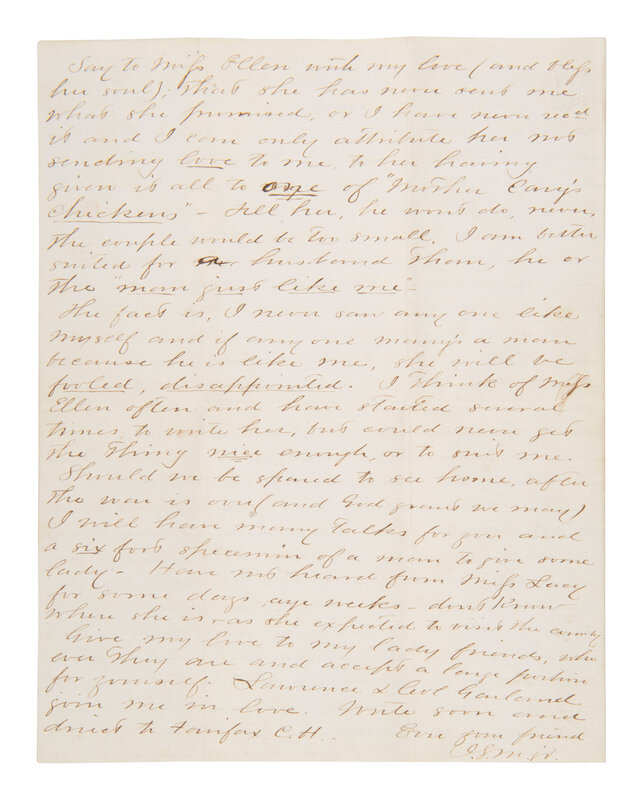 Say to Miss Ellen with my love (and bless
her soul), that she has never sent me
what she promised, or I have never recd
it and I can only attribute her not
sending love to me, to her having
given it all to one of "Mother Cary's
Chickens" - Tell her, he wont do, never,
the couple would be too small. I am better
suited for a husband than, he or
the "man just like me"-
The fact is, I never saw any one like
myself and if any one marry's a man
because he is like me, she will be
fooled, disappointed. I think of Miss
Ellen often and have started several
times, to write her, but could never get
the thing nice enough, or to suit me.
Should we be spared to see home, after
the war is over (and God grant we may)
I will have many talks for you and
a six foot specimin of a man to give some
lady - Have not heard from Miss Lucy
for some days, aye weeks - don't know
where she is - as she expected to visit the
Give my love to my lady friends, who
ever they are and accept a large portion
for yourself. Lawrence & Col Garland
join me in love. Write soon and
direct to Fairfax C.H. - Ever your friend